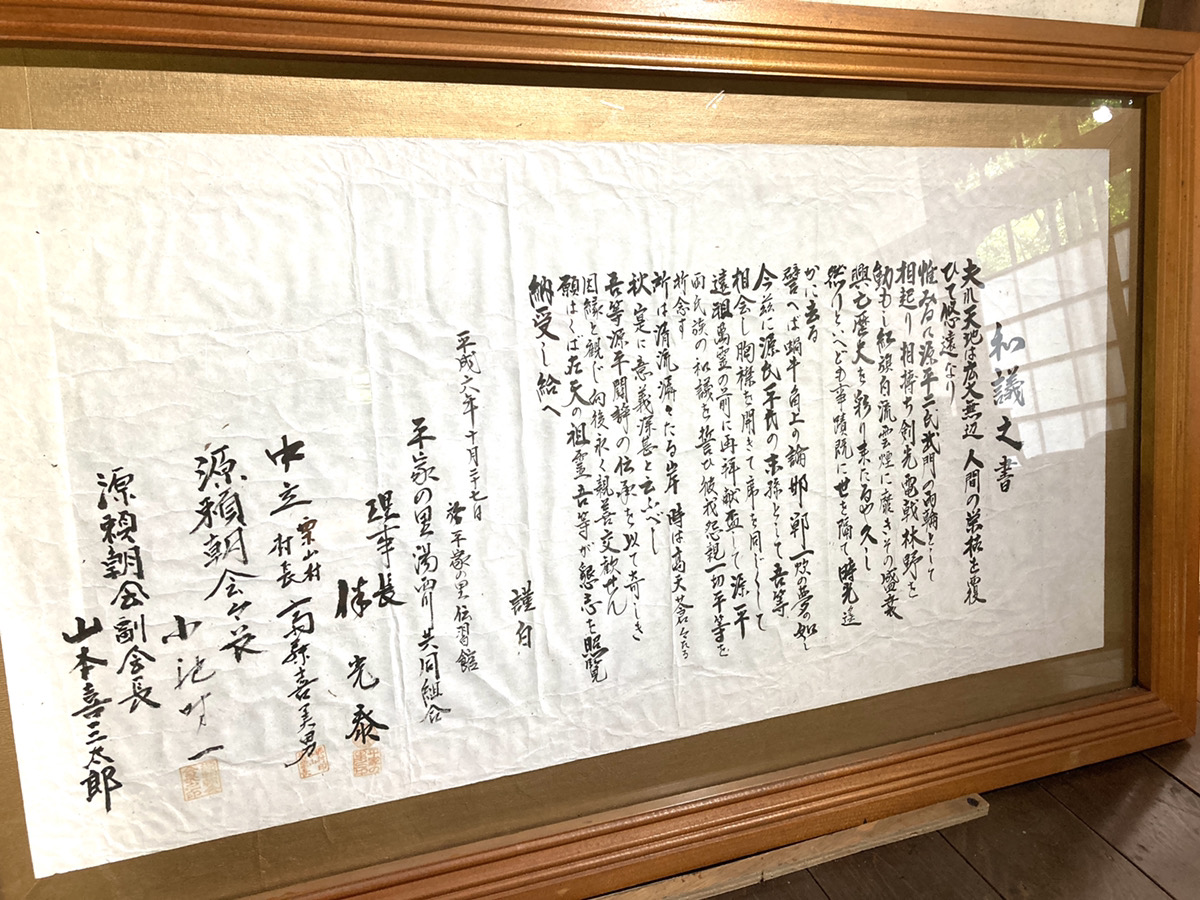 和議之書
夫れ天地は広大無辺 人間の栄枯を覆
ひて悠遠なり
惟みるに源平二氏武門の両輪として
相起り相搏ち剣光電戟林野を
動もし紅旗白流雲煙に靡きその盛衰
興亡歴史を彩り来たる酒久し
然りといへども事蹟既に世を隔て時光遥
かに去る
譬へば蝸牛角上の論邯鄲一炊の夢の如し
今茲に源氏平氏の末孫として吾等
相会し胸襟を開きて席を同じくして
遠祖萬霊の前に再拝献盃して源平
両氏族の和議を誓ひ彼我怨親一切平等を
祈念す
所は清流満々たる岸 時は高天蒼々たる
秋 寔に意義深甚と云ふべし
吾等源平関粋の伝承を以て奇しき
因縁と観じ向後永く親善交歓せん
願はくば在天の祖霊吾等が懇志を照覧
納受し給へ
謹白
平成六年十月二十七日
於平家の里伝習館
平家の里湯西川共同組合
理事長
伴 光泰
中立 栗山村
村長 斎藤喜美男
源頼朝会会長
小池
源頼朝会副会長
山本喜三太郎